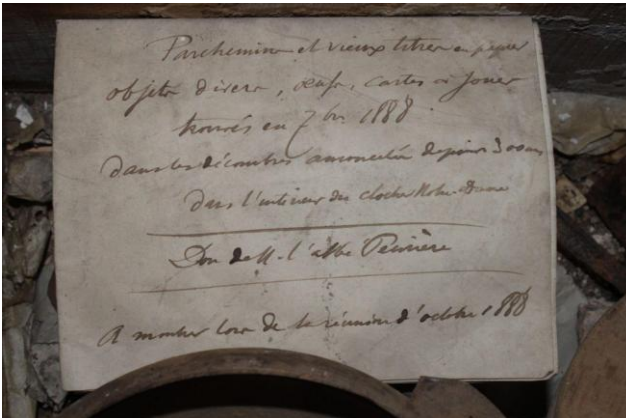 Parchemins et vieux titres en papier
objets divers, œufs, cartes à jouer
trouvés en 7bre 1888
dans les décombres amoncelés depuis 300 ans
dans l'intérieur du clocher Notre-Dame
Don de M. l'abbé
A montrer lors de la réunion d'octobre 1888